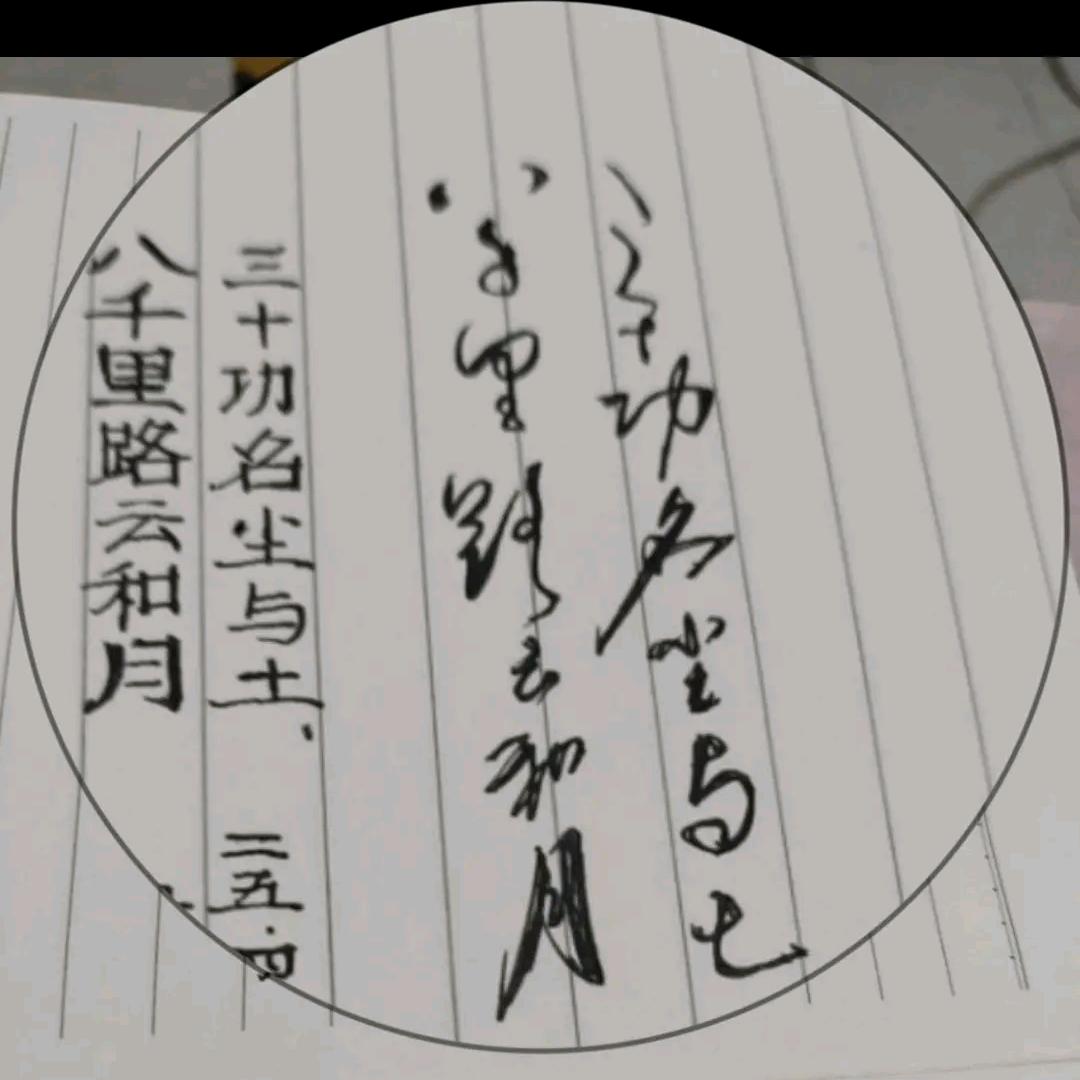 三十功名尘与土
八千里路云和月
三十功名尘与土、
二五·四
八千里路云和月